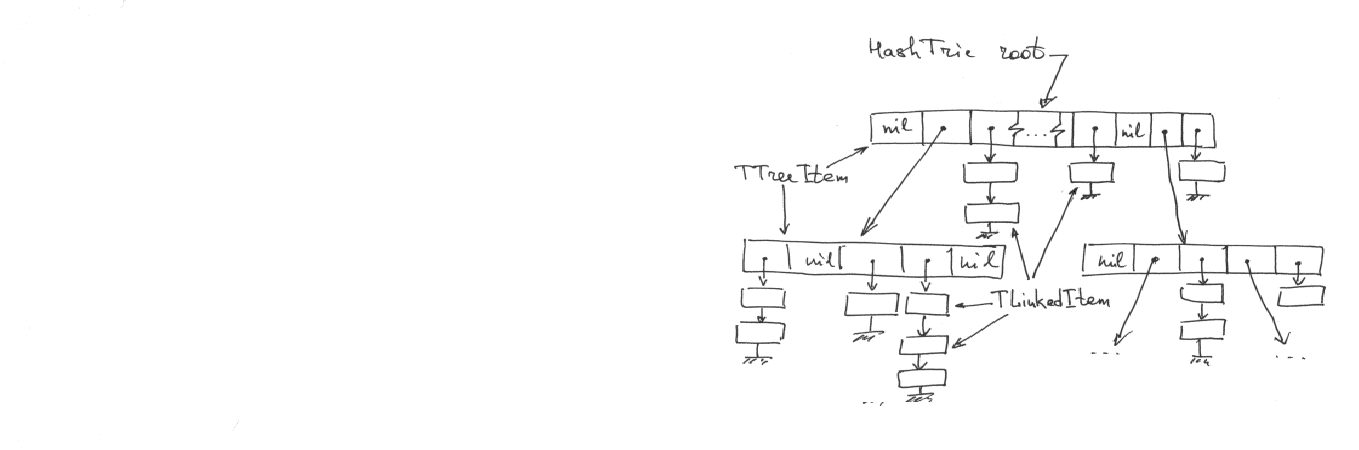 HashTrie root
nil ... nil
TTreeItem
nil nil nil
TLinkedItem
--- ---
...